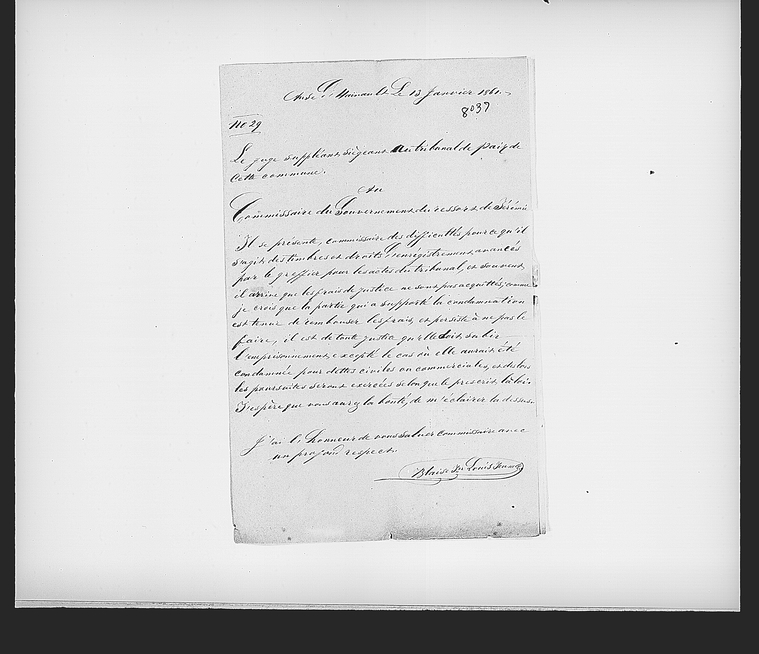 Anse d'Hainault Le 13 Janvier 1861.
8037
No 29
Le juge suppléant, siégeant au tribunal de paix de
Cette commune.
Au
Commissaire du Gouvernement du ressort de Jérémie
Il se présente, commissaire des difficultés pour ce qu'il
s'agit des timbres et droits d'enrégistrement, avancés
par le greffier pour les actes du tribunal, et souvent,
il arrive que les frais de justice ne sont pas acquittés, comme
je crois que la partie qui a supporté la condamnation
est tenue de rembourser les frais, et persiste à ne pas le
faire, il est de toute justice qu'elle soit, subir
l'emprisonnement, excepté le cas où elle aurait été
condamnée pour dettes civiles ou commerciales, et dès lors
les poursuites seront exercées selon que le prescrit, la loi.
J'espère que vous aurez la bonté, de m'éclairer là dessus.
J'ai l'honneur de vous saluer commissaire avec
un profond respect.
Blaise Louis Jeune